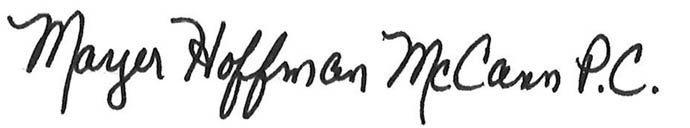 Mayer Hoffman McCann P.C.